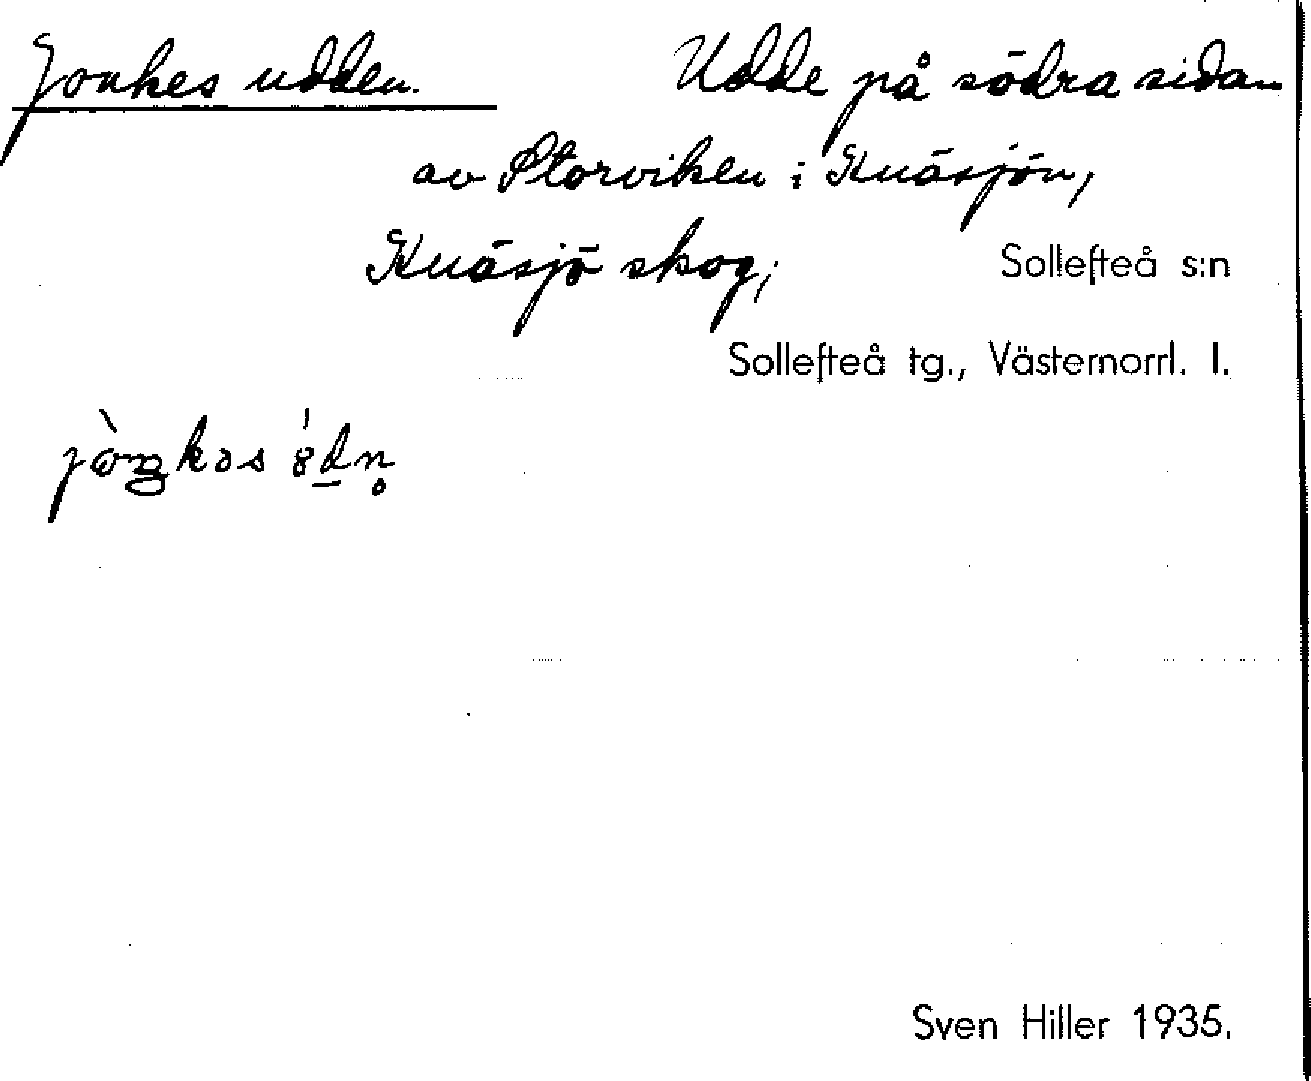 Jonkes udden. Udde på södra sidan
av Storviken i Knäsjön,
Knäsjö skog;
Sollefteå s:n
Sollefteå tg., Västernorrl. l.
Sven Hiller 1935.